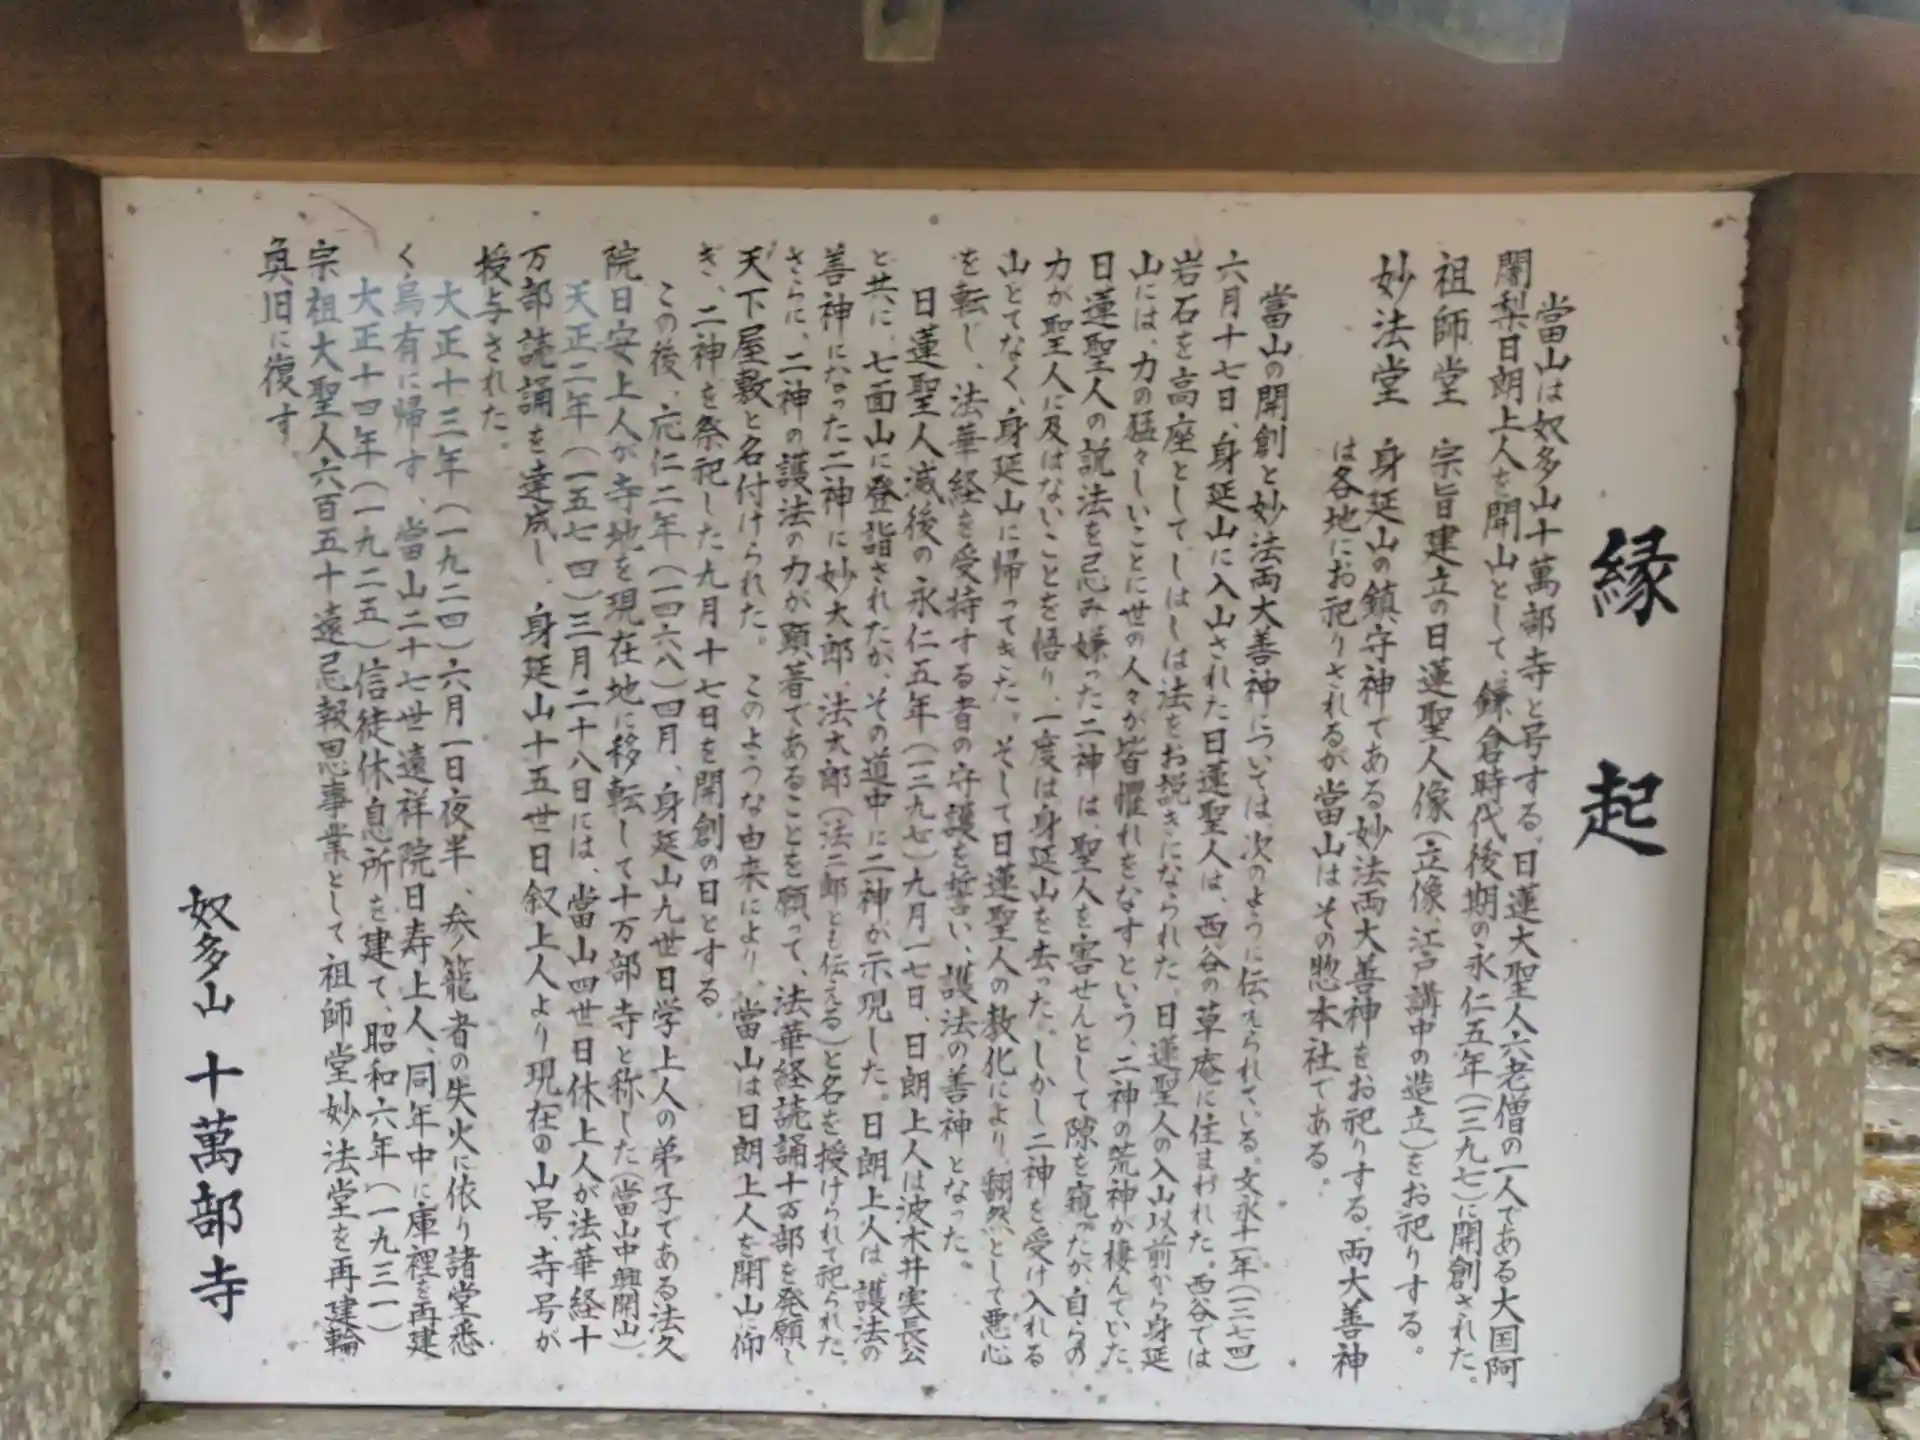 縁起
當山は奴多山十萬部寺と号する。日蓮大聖人六老僧の一人である大国阿
闍梨日朗上人を開山として、鎌倉時代後期の永仁五年(一二九七)に開創された。
祖師堂 宗旨建立の日蓮聖人像(立像、江戸講中の造立)をお祀りする。
妙法堂 身延山の鎮守神である妙法両大善神をお祀りする。両大善神
は各地にお祀りされるが當山はその惣本社である。
當山の開創と妙法両大善神については次のように伝えられている。文永十一年(一二七四)
六月十七日、身延山に入山された日蓮聖人は、西谷の草庵に住まわれた。西谷では
岩石を高座としてしばしば法をお説きになられた。日蓮聖人の入山以前から身延
山には、力の猛々しいことに世の人々が皆懼れをなすという、二神の荒神が棲んでいた。
日蓮聖人の説法を忌み嫌った二神は、聖人を害せんとして隙を窺ったが、自らの
力が聖人に及ばないことを悟り、一度は身延山を去った。しかし二神を受け入れる
山とてなく、身延山に帰ってきた。そして日蓮聖人の教化により、翻然として悪心
を転じ、法華経を受持する者の守護を誓い、護法の善神となった。
日蓮聖人滅後の永仁五年(一二九七)九月一七日、日朗上人は波木井実長公
と共に、七面山に登詣されたが、その道中に二神が示現した。日朗上人は、護法の
善神になった二神に妙太郎、法太郎(法二郎とも伝える)と名を授けられて祀られた。
さらに、二神の護法の力が顕著であることを願って、法華経読誦十万部を発願し
天下屋敷と名付けられた。このような由来により、當山は日朗上人を開山に仰
ぎ、二神を祭祀した九月十七日を開創の日とする。
この後、応仁二年(一四六八)四月、身延山九世日学上人の弟子である法久
院日安上人が寺地を現在地に移転して十万部寺と称した(當山中興開山)。
天正二年(一五七四)三月二十八日には、當山四世日休上人が法華経十
万部読誦を達成し、身延山十五世日叙上人より現在の山号、寺号が
授与された。
大正十三年(一九二四)六月一日夜半、参籠者の失火に依り諸堂悉
く烏有に帰す、當山二十七世遠祥院日寿上人、同年中に庫裡を再建
大正十四年(一九二五)信徒休息所を建て、昭和六年(一九三一)
宗祖大聖人六百五十遠忌報恩事業として祖師堂妙法堂を再建輪
奐旧に復す。
奴多山 十萬部寺